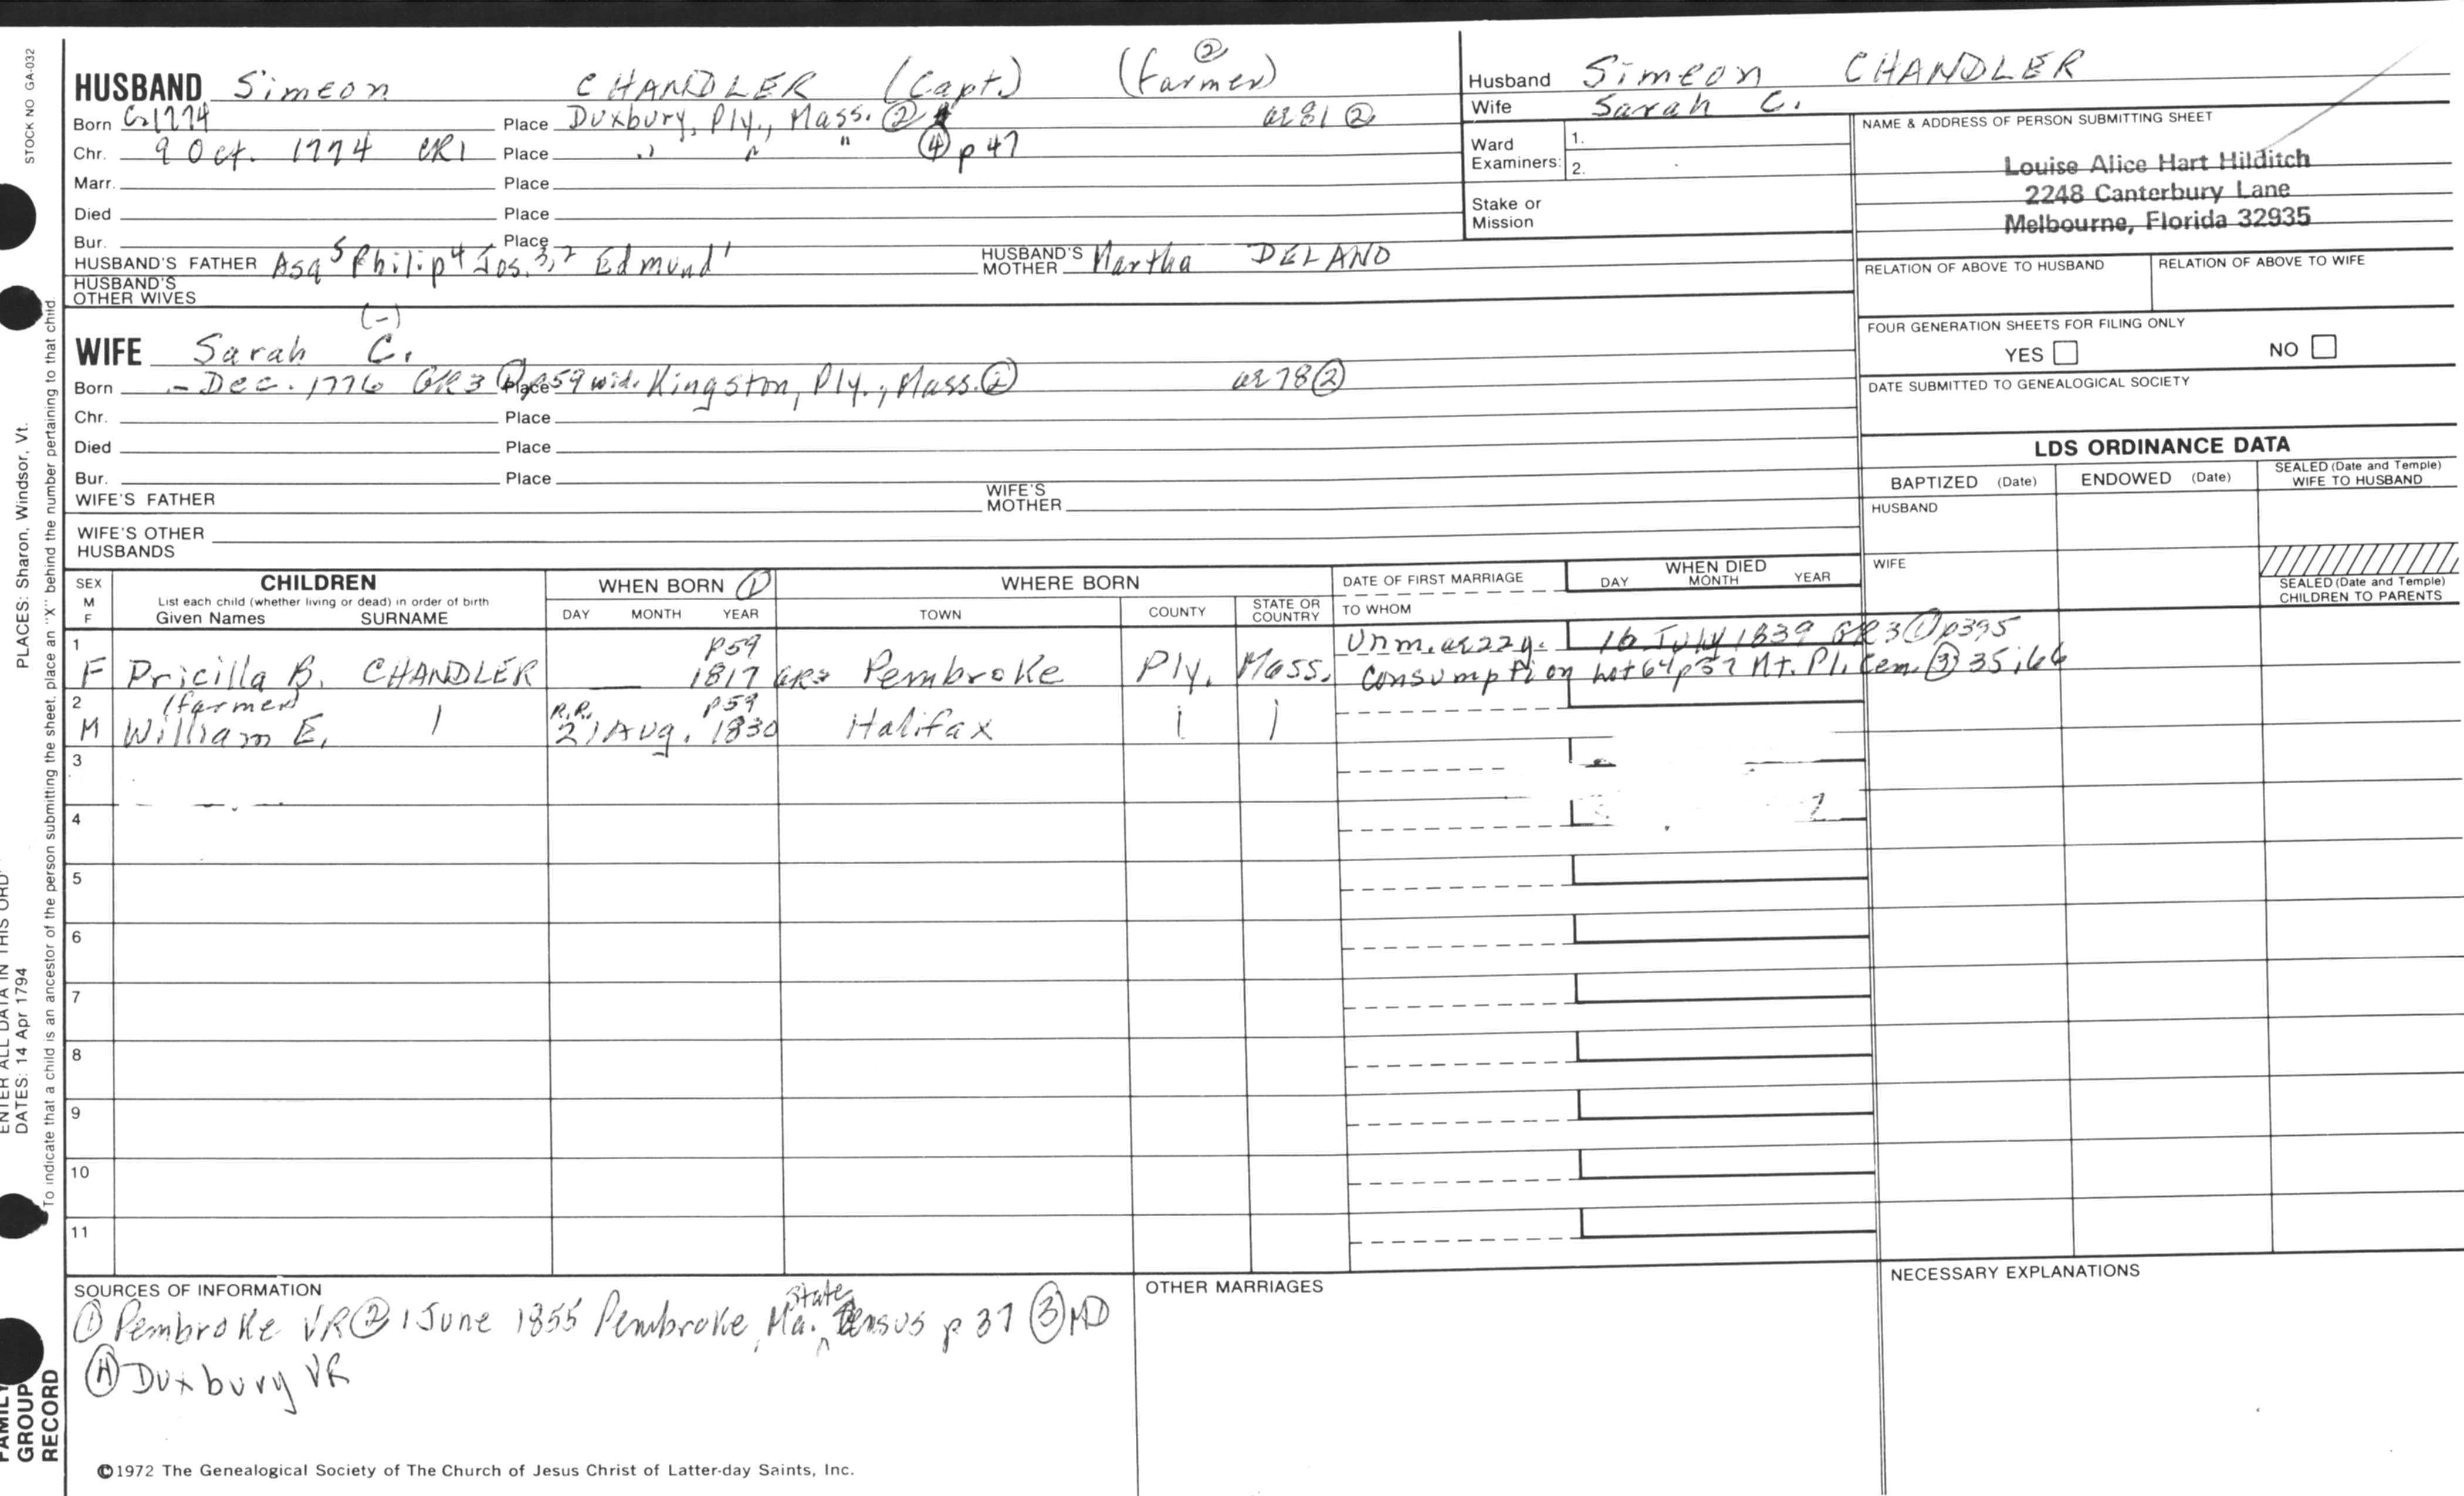 STOCK NO GA-032
HUSBAND Simeon CHANDLER (Capt.) (farmer) ②
Born C-1774 Place Duxbury, Ply., Mass. ② ae 81 ②
Chr. 9 Oct. 1774 CR1 Place " " " ④ p 47
Marr. Place
Died Place
Bur. Place
HUSBAND'S FATHER Asa 5 Philip 4 Jos. 3,2 Edmund 1 HUSBAND'S MOTHER Martha DELANO
HUSBAND'S OTHER WIVES
(-)
WIFE Sarah C.
Born - Dec. 1776 GR3 ① p59 wid. Place Kingston, Ply., Mass. ② ae 78 ②
Chr. Place
Died Place
Bur. Place
WIFE'S FATHER WIFE'S MOTHER
WIFE'S OTHER HUSBANDS
Husband Simeon CHANDLER
Wife Sarah C.
Ward Examiners: 1.
2.
Stake or Mission
NAME & ADDRESS OF PERSON SUBMITTING SHEET
Louise Alice Hart Hilditch
2248 Canterbury Lane
Melbourne, Florida 32935
RELATION OF ABOVE TO HUSBAND RELATION OF ABOVE TO WIFE
FOUR GENERATION SHEETS FOR FILING ONLY
YES NO
DATE SUBMITTED TO GENEALOGICAL SOCIETY
LDS ORDINANCE DATA
BAPTIZED (Date) ENDOWED (Date) SEALED (Date and Temple) WIFE TO HUSBAND
HUSBAND
WIFE
SEALED (Date and Temple) CHILDREN TO PARENTS
SEX M F CHILDREN WHEN BORN ① WHERE BORN DATE OF FIRST MARRIAGE WHEN DIED
List each child (whether living or dead) in order of birth DAY MONTH YEAR
Given Names SURNAME DAY MONTH YEAR TOWN COUNTY STATE OR COUNTRY TO WHOM
1 p59 Unm. ae 22y. 16 July 1839 GR3 ① p395
F Pricilla B. CHANDLER 1817 GR3 Pembroke Ply. Mass. Consumption Lot 64 p37 Mt. Pl. Cem. ③ 35:66
2 (farmer) R.R. p59
M William E. 21 Aug. 1830 Halifax
3
4
5
6
7
8
9
10
11
SOURCES OF INFORMATION
① Pembroke VR ② 1 June 1855 Pembroke, Ma. State Census p 37 ③ MD
④ Duxbury VR
OTHER MARRIAGES
NECESSARY EXPLANATIONS
©1972 The Genealogical Society of The Church of Jesus Christ of Latter-day Saints, Inc.
PLACES: Sharon, Windsor, Vt.
To indicate that a child is an ancestor of the person submitting the sheet, place an "X" behind the number pertaining to that child.
ENTER ALL DATA IN THIS ORD
DATES: 14 Apr 1794
FAMILY GROUP RECORD